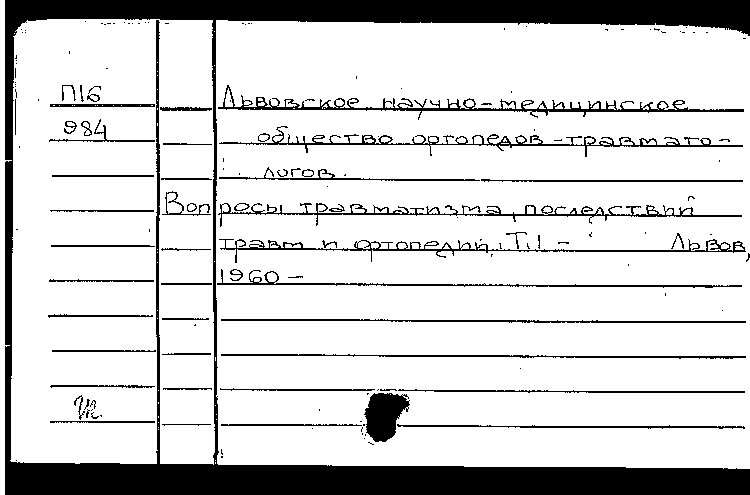 П16 Львовское научно-медицинское
984 общество ортопедов-травмато-
логов.
Вопросы травматизма, последствий
травм и ортопедии. Т.1 - Львов,
1960 -